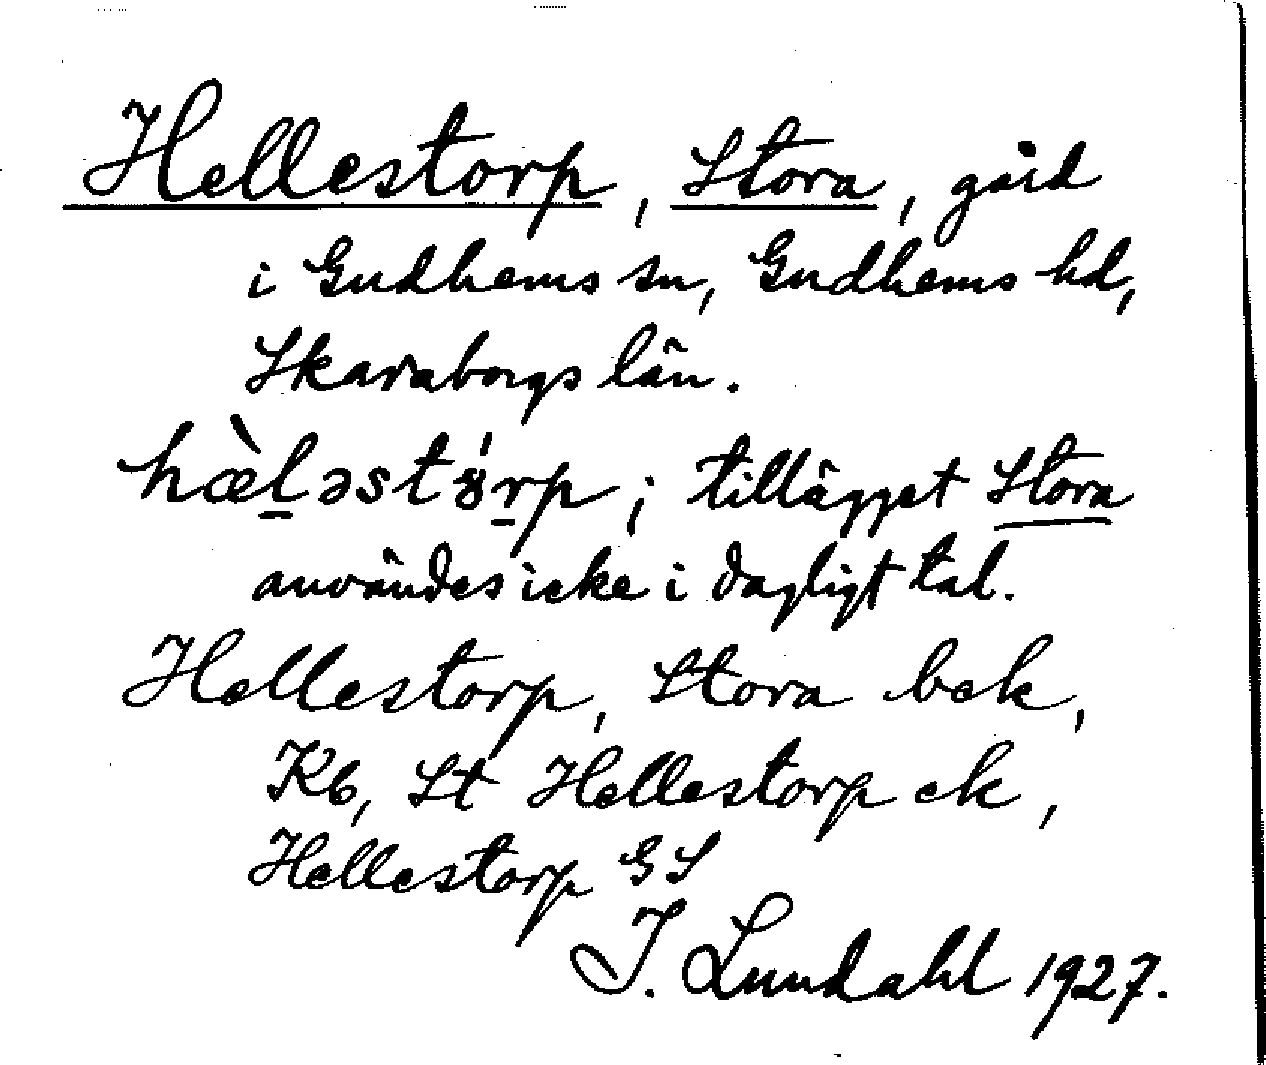 Hellestorp, Stora, gård
i Gudhems sn, Gudhems hd,
Skaraborgs län.
hæ̀l̠əstɤ́r̠p; tillägget Stora
användes icke i dagligt tal.
Hellestorp, Stora bek,
Kb, St Hellestorp ek,
Hellestorp GS
I. Lundahl 1927.